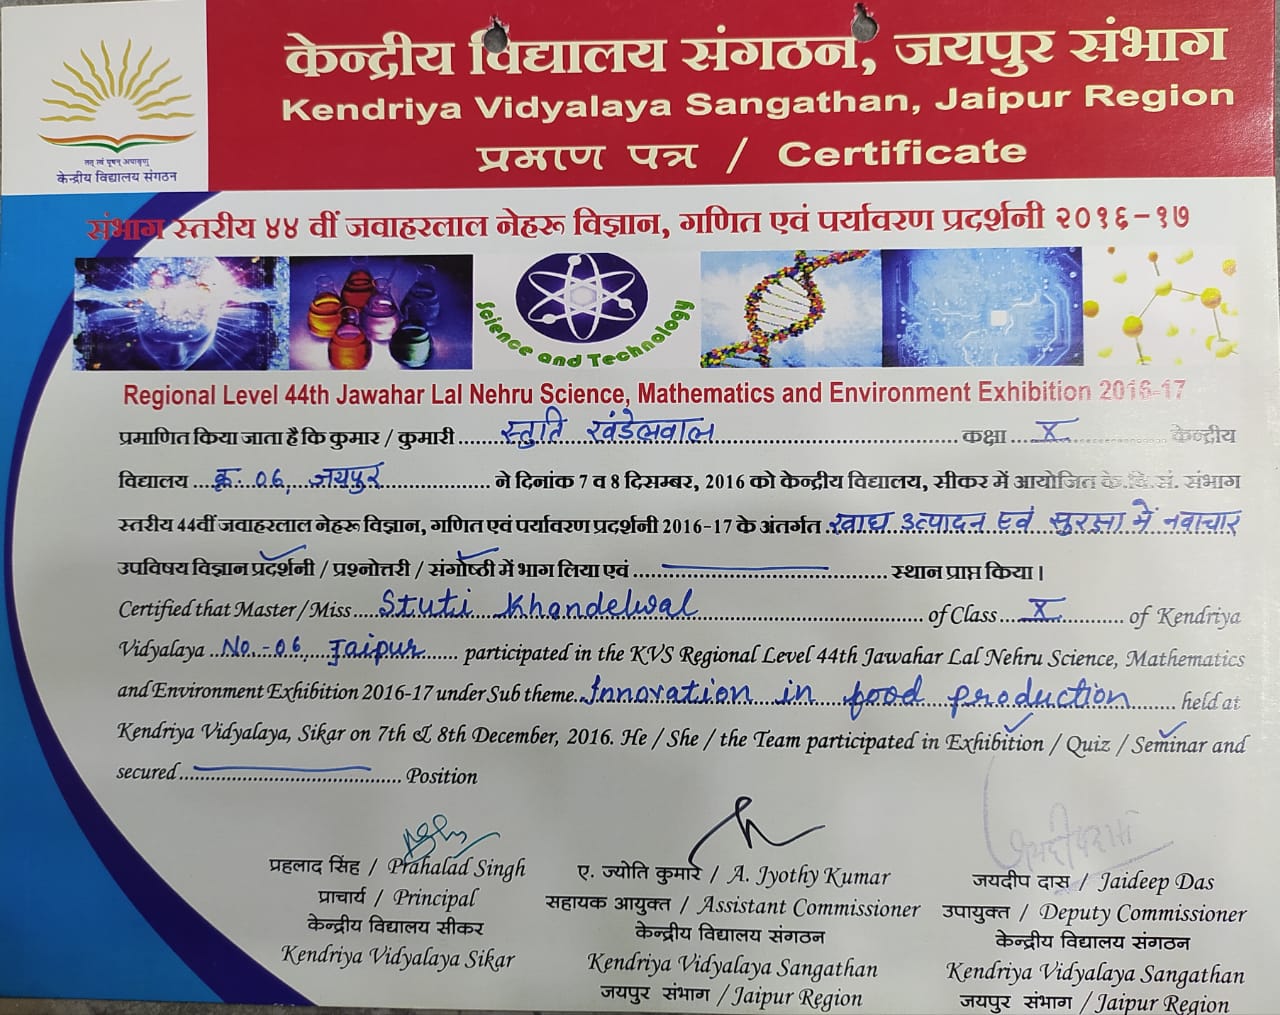 केन्द्रीय विद्यालय संगठन, जयपुर संभाग
Kendriya Vidyalaya Sangathan, Jaipur Region
प्रमाण पत्र / Certificate
तत् त्वं पूषन् अपावृणु
केन्द्रीय विद्यालय संगठन
संभाग स्तरीय ४४ वीं जवाहरलाल नेहरू विज्ञान, गणित एवं पर्यावरण प्रदर्शनी २०१६-१७
Science and Technology
Regional Level 44th Jawahar Lal Nehru Science, Mathematics and Environment Exhibition 2016-17
प्रमाणित किया जाता है कि कुमार / कुमारी स्तुति खंडेलवाल कक्षा X केन्द्रीय
विद्यालय क्र. 06, जयपुर ने दिनांक 7 व 8 दिसम्बर, 2016 को केन्द्रीय विद्यालय, सीकर में आयोजित के.वि.सं. संभाग
स्तरीय 44वीं जवाहरलाल नेहरू विज्ञान, गणित एवं पर्यावरण प्रदर्शनी 2016-17 के अंतर्गत खाद्य उत्पादन एवं सुरक्षा में नवाचार
उपविषय विज्ञान प्रदर्शनी / प्रश्नोत्तरी / संगोष्ठी में भाग लिया एवं स्थान प्राप्त किया।
Certified that Master / Miss Stuti Khandelwal of Class X of Kendriya
Vidyalaya No.-06, Jaipur participated in the KVS Regional Level 44th Jawahar Lal Nehru Science, Mathematics
and Environment Exhibition 2016-17 under Sub theme Innovation in food production held at
Kendriya Vidyalaya, Sikar on 7th & 8th December, 2016. He / She / the Team participated in Exhibition / Quiz / Seminar and
secured Position
प्रहलाद सिंह / Prahalad Singh
प्राचार्य / Principal
केन्द्रीय विद्यालय सीकर
Kendriya Vidyalaya Sikar
ए. ज्योति कुमार / A. Jyothy Kumar
सहायक आयुक्त / Assistant Commissioner
केन्द्रीय विद्यालय संगठन
Kendriya Vidyalaya Sangathan
जयपुर संभाग / Jaipur Region
जयदीप दास / Jaideep Das
उपायुक्त / Deputy Commissioner
केन्द्रीय विद्यालय संगठन
Kendriya Vidyalaya Sangathan
जयपुर संभाग / Jaipur Region